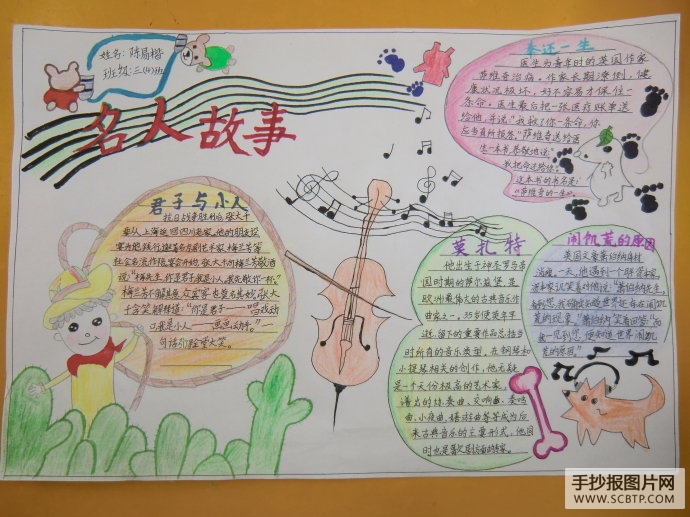 姓名：陈易楷
班级：三(4)班
名人故事
奉还一生
医生为青年时的英国作家
萨维奇治病。作家长期潦倒，健
康状况极坏，好不容易才保住一
条命。医生最后把一张医疗账单送
给他，并说："我救了你一条命，你
应当有所报答。"萨维奇送给医
生一本书恭敬地说："
我把命还给你。"
这本书的书名是：
《萨维奇的一生》。
君子与小人
抗日战争胜利后，张大千
要从上海返回四川老家。他的朋友设
宴为他饯行，邀著名京剧艺术家梅兰芳等
社会名流作陪。宴会开始，张大千向梅兰芳敬酒
说："梅先生，你是君子，我是小人，我先敬你一杯。"
梅兰芳不解其意，众宾客也莫名其妙。张大
千含笑解释道："你是君子——唱戏动
口，我是小人——画画动手。"一
句话引得满堂大笑。
莫扎特
他出生于神圣罗马帝
国时期的萨尔兹堡，是
欧洲最伟大的古典音乐作
曲家之一。35岁便英年早
逝，留下的重要作品总括当
时所有的音乐类型，在钢琴和
小提琴相关的创作，他无疑
是一个天份极高的艺术家，
谱出的协奏曲、交响曲、奏鸣
曲、小夜曲、嬉游曲等等成为后
来古典音乐的主要形式，他同
时也是歌剧方面的专家。
闹饥荒的原因
英国文豪萧伯纳身材
消瘦。一天，他遇到一个胖资本家，
资本家说笑着对他说："萧伯纳先生，
的现象。"萧伯纳笑着回答："而
我一见到您，便知道世界闹饥
荒的原因。"
手抄报图片网
WWW.SCBTP.COM